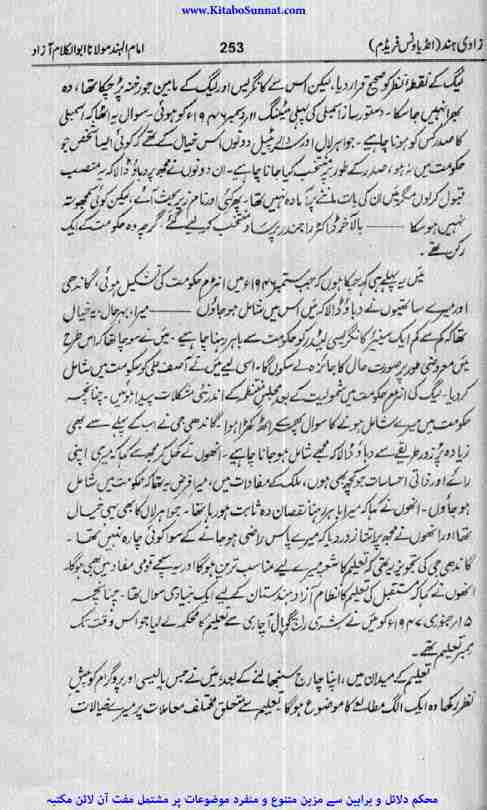 www.KitaboSunnat.com
زادی ہند (انڈیا ونس فریڈم) 253 امام الہند مولانا ابوالکلام آزاد
لیگ کے نقطۂ نظر کو صحیح قرار دیا، لیکن اس سے کانگریس اور لیگ کے مابین جو رخنہ پڑ چکا تھا، وہ
بھرا نہیں جا سکا۔ دستور ساز اسمبلی کی پہلی میٹنگ ۱۱ دسمبر ۱۹۴۶ء کو ہوئی۔ سوال یہ اٹھا کہ اسمبلی
کا صدر کس کو ہونا چاہیے۔ جواہر لال اور سردار پٹیل دونوں اس خیال کے تھے کہ کوئی ایسا شخص جو
حکومت میں نہ ہو، صدر کے طور پر منتخب کیا جانا چاہیے۔ ان دونوں نے مجھ پر دباؤ ڈالا کہ یہ منصب
قبول کر لوں مگر میں ان کی بات ماننے پر آمادہ نہیں تھا۔ پھر کئی اور نام زیر بحث آئے، لیکن کوئی سمجھوتہ
نہیں ہو سکا ——— بالآخر ڈاکٹر راجندر پرساد منتخب کر لیے گئے، گرچہ وہ حکومت کے ایک
رکن تھے۔
میں یہ پہلے ہی کہہ چکا ہوں کہ جب ستمبر ۱۹۴۶ء میں انٹرم حکومت کی تشکیل ہوئی، گاندھی
اور میرے ساتھیوں نے دباؤ ڈالا کہ میں اس میں شامل ہو جاؤں ——— میرا، بہر حال، یہ خیال
تھا کہ کم سے کم ایک سینیئر کانگریسی لیڈر کو حکومت سے باہر رہنا چاہیے۔ میں نے سوچا تھا کہ اس طرح
میں معروضی طور پر صورت حال کا جائزہ لے سکوں گا۔ اسی لیے میں نے آصف علی کو حکومت میں شامل
کر دیا۔ لیگ کی انٹرم حکومت میں شمولیت کے بعد مجلس منتظمہ کے اندر نئی مشکلات پیدا ہوئیں۔ چنانچہ
حکومت میں میرے شامل ہونے کا سوال پھر سے اٹھ کھڑا ہوا۔ گاندھی جی نے اب کے پہلے سے بھی
زیادہ پر زور طریقے سے دباؤ ڈالا کہ مجھے شامل ہو جانا چاہیے۔ انھوں نے کھل کر مجھ سے کہا کہ میری اپنی
رائے اور ذاتی احساسات جو کچھ بھی ہوں، ملک کے مفادات میں، میرا فرض یہ تھا کہ حکومت میں شامل
ہو جاؤں۔ انھوں نے کہا کہ میرا باہر رہنا نقصان دہ ثابت ہو رہا تھا۔ جواہر لال کا بھی یہی خیال
تھا، اور انھوں نے مجھ پر اتنا زور دیا کہ میرے پاس راضی ہو جانے کے سوا کوئی چارہ نہیں تھا۔
گاندھی جی کی تجویز یہ تھی کہ تعلیم کا شعبہ میرے لیے مناسب ترین ہوگا اور یہ سچے قومی مفاد میں بھی ہوگا۔
انھوں نے کہا کہ مستقبل کی تعلیم کا نظام آزاد ہندستان کے لیے ایک بنیادی سوال تھا۔ چنانچہ
۱۵ جنوری ۱۹۴۷ء کو میں نے شری راج گوپال آچاری سے تعلیم کا محکمہ لے لیا جو اس وقت تک
ممبر تعلیم تھے۔
تعلیم کے میدان میں، اپنا چارج سنبھالنے کے بعد میں نے جس پالیسی اور پروگرام کو پیش
نظر رکھا وہ ایک الگ مطالعے کا موضوع ہوگا۔ تعلیم سے متعلق مختلف معاملات پر میرے خیالات
محکم دلائل و براہین سے مزین متنوع و منفرد موضوعات پر مشتمل مفت آن لائن مکتبہ